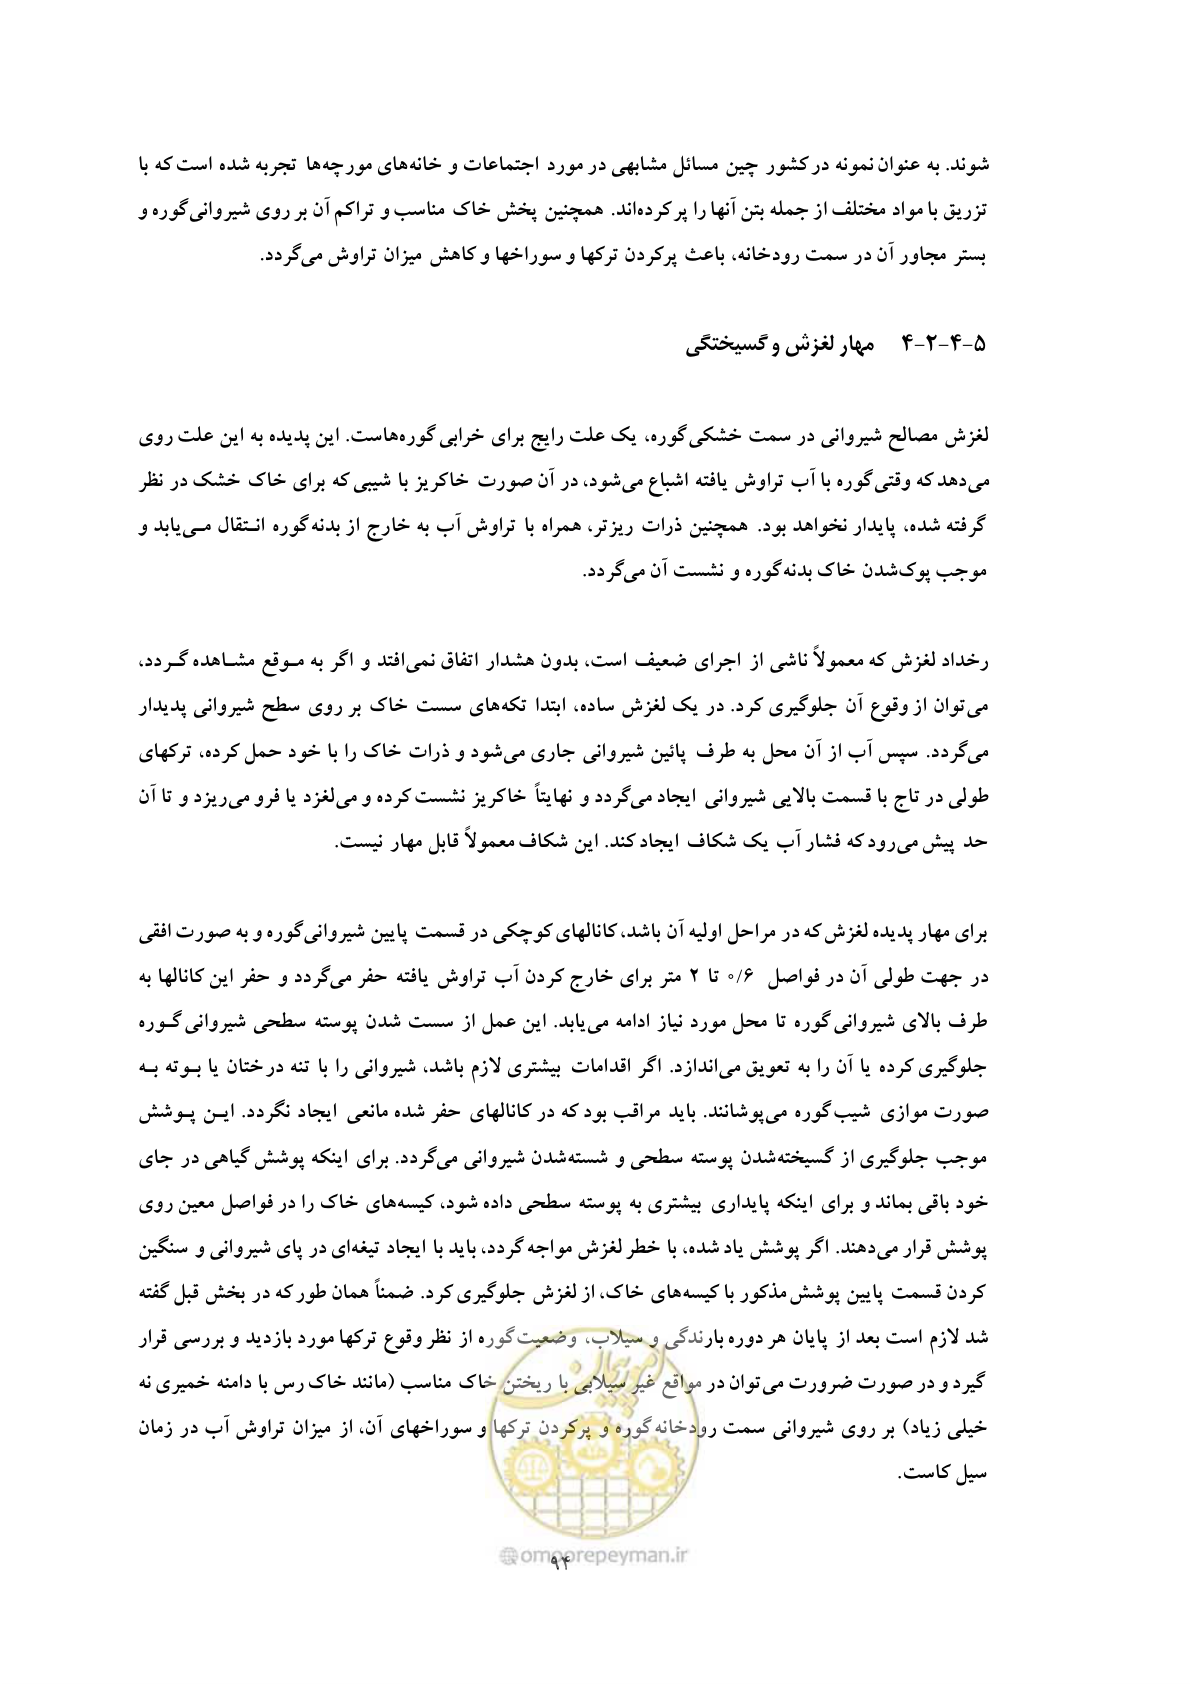 شوند. به عنوان نمونه در کشور چین مسائل مشابهی در مورد اجتماعات و خانه‌های مورچه‌ها تجربه شده است که با
تزریق با مواد مختلف از جمله بتن آنها را پر کرده‌اند. همچنین پخش خاک مناسب و تراکم آن بر روی شیروانی گوره و
بستر مجاور آن در سمت رودخانه، باعث پرکردن ترکها و سوراخها و کاهش میزان تراوش می‌گردد.
۴-۲-۴-۵ مهار لغزش و گسیختگی
لغزش مصالح شیروانی در سمت خشکی گوره، یک علت رایج برای خرابی گوره‌هاست. این پدیده به این علت روی
می‌دهد که وقتی گوره با آب تراوش یافته اشباع می‌شود، در آن صورت خاکریز با شیبی که برای خاک خشک در نظر
گرفته شده، پایدار نخواهد بود. همچنین ذرات ریزتر، همراه با تراوش آب به خارج از بدنه گوره انـتقال مـی‌یابد و
موجب پوک‌شدن خاک بدنه گوره و نشست آن می‌گردد.
رخداد لغزش که معمولاً ناشی از اجرای ضعیف است، بدون هشدار اتفاق نمی‌افتد و اگر به مـوقع مشـاهده گـردد،
می‌توان از وقوع آن جلوگیری کرد. در یک لغزش ساده، ابتدا تکه‌های سست خاک بر روی سطح شیروانی پدیدار
می‌گردد. سپس آب از آن محل به طرف پائین شیروانی جاری می‌شود و ذرات خاک را با خود حمل کرده، ترکهای
طولی در تاج با قسمت بالایی شیروانی ایجاد می‌گردد و نهایتاً خاکریز نشست کرده و می‌لغزد یا فرو می‌ریزد و تا آن
حد پیش می‌رود که فشار آب یک شکاف ایجاد کند. این شکاف معمولاً قابل مهار نیست.
برای مهار پدیده لغزش که در مراحل اولیه آن باشد، کانالهای کوچکی در قسمت پایین شیروانی گوره و به صورت افقی
در جهت طولی آن در فواصل ۰/۶ تا ۲ متر برای خارج کردن آب تراوش یافته حفر می‌گردد و حفر این کانالها به
طرف بالای شیروانی گوره تا محل مورد نیاز ادامه می‌یابد. این عمل از سست شدن پوسته سطحی شیروانی گـوره
جلوگیری کرده یا آن را به تعویق می‌اندازد. اگر اقدامات بیشتری لازم باشد، شیروانی را با تنه درختان یا بـوته بـه
صورت موازی شیب گوره می‌پوشانند. باید مراقب بود که در کانالهای حفر شده مانعی ایجاد نگردد. ایـن پـوشش
موجب جلوگیری از گسیخته‌شدن پوسته سطحی و شسته‌شدن شیروانی می‌گردد. برای اینکه پوشش گیاهی در جای
خود باقی بماند و برای اینکه پایداری بیشتری به پوسته سطحی داده شود، کیسه‌های خاک را در فواصل معین روی
پوشش قرار می‌دهند. اگر پوشش یاد شده، با خطر لغزش مواجه گردد، باید با ایجاد تیغه‌ای در پای شیروانی و سنگین
کردن قسمت پایین پوشش مذکور با کیسه‌های خاک، از لغزش جلوگیری کرد. ضمناً همان طور که در بخش قبل گفته
شد لازم است بعد از پایان هر دوره بارندگی و سیلاب، وضعیت گوره از نظر وقوع ترکها مورد بازدید و بررسی قرار
گیرد و در صورت ضرورت می‌توان در مواقع غیر سیلابی با ریختن خاک مناسب (مانند خاک رس با دامنه خمیری نه
خیلی زیاد) بر روی شیروانی سمت رودخانه گوره و پرکردن ترکها و سوراخهای آن، از میزان تراوش آب در زمان
سیل کاست.
امور پیمان
@omoorepeyman.ir
۹۴